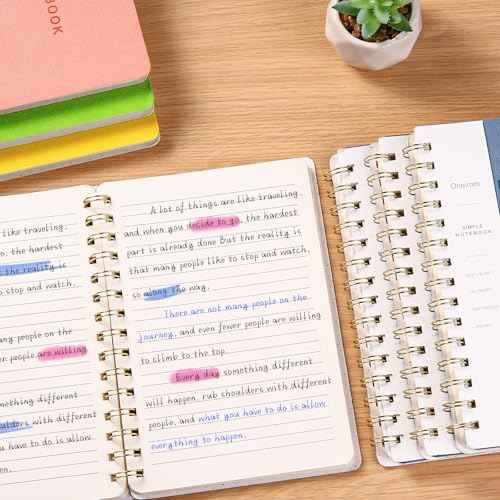 BOOK
like traveling.
o, the hardest
the reality is
o stop and watch,
any people on the
er people are willing
mething different
oulders with different
u have to do is allow
en.
A lot of things are like traveling.
and when you decide to go, the hardest
part is already done But the reality is
that many people like to stop and watch,
so along the way.
There are not many people on the
journey, and even fewer people are willing
to climb to the top.
Every day something different
will happen, rub shoulders with different
people, and what you have to do is allow
everything to happen.
SIMPLE
NOTEBOOK